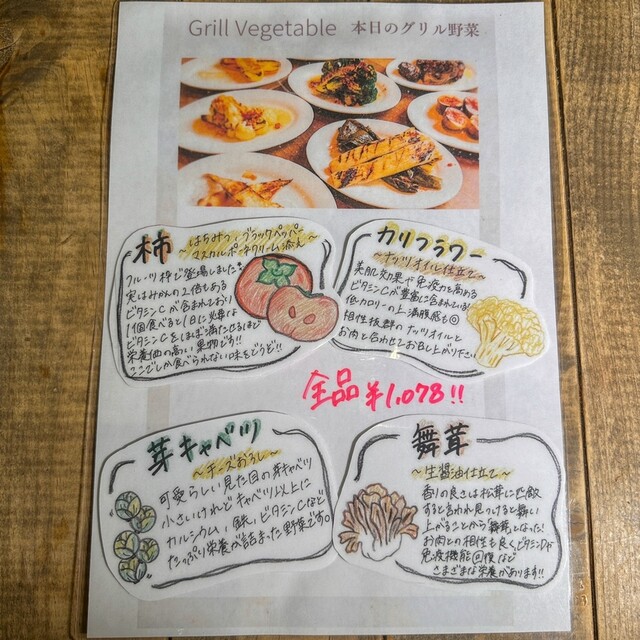 Grill Vegetable 本日のグリル野菜
柿
~はちみつ、ブラックペッパー
マスカルポーネクリーム添え~
フルーツ柿で登場しました。
実はみかんの2倍もある
ビタミンCが含まれており
1個食べると1日に必要な
ビタミンCをほぼ満たせるほど
栄養価の高い果物です!!
ここでしか食べられない味をどうぞ!!
カリフラワー
~ナッツオイル仕立て~
美肌効果や免疫力を高める
ビタミンCが豊富に含まれている!
低カロリーの上満腹感も◎
相性抜群のナッツオイルと
お肉と合わせてお召し上がり下さい
全品¥1,078!!
芽キャベツ
~チーズおろし~
可愛らしい見た目の芽キャベツ
小さいけれどキャベツ以上に
カルシウム、鉄、ビタミンCなど
たっぷり栄養が詰まった野菜です。
舞茸
~生醤油仕立て~
香りの良さは松茸に匹敵
すると言われ見つけると舞い
上がることから"舞茸"となった!
お肉との相性も良くビタミンDが
免疫機能回復など
さまざまな栄養があります!!